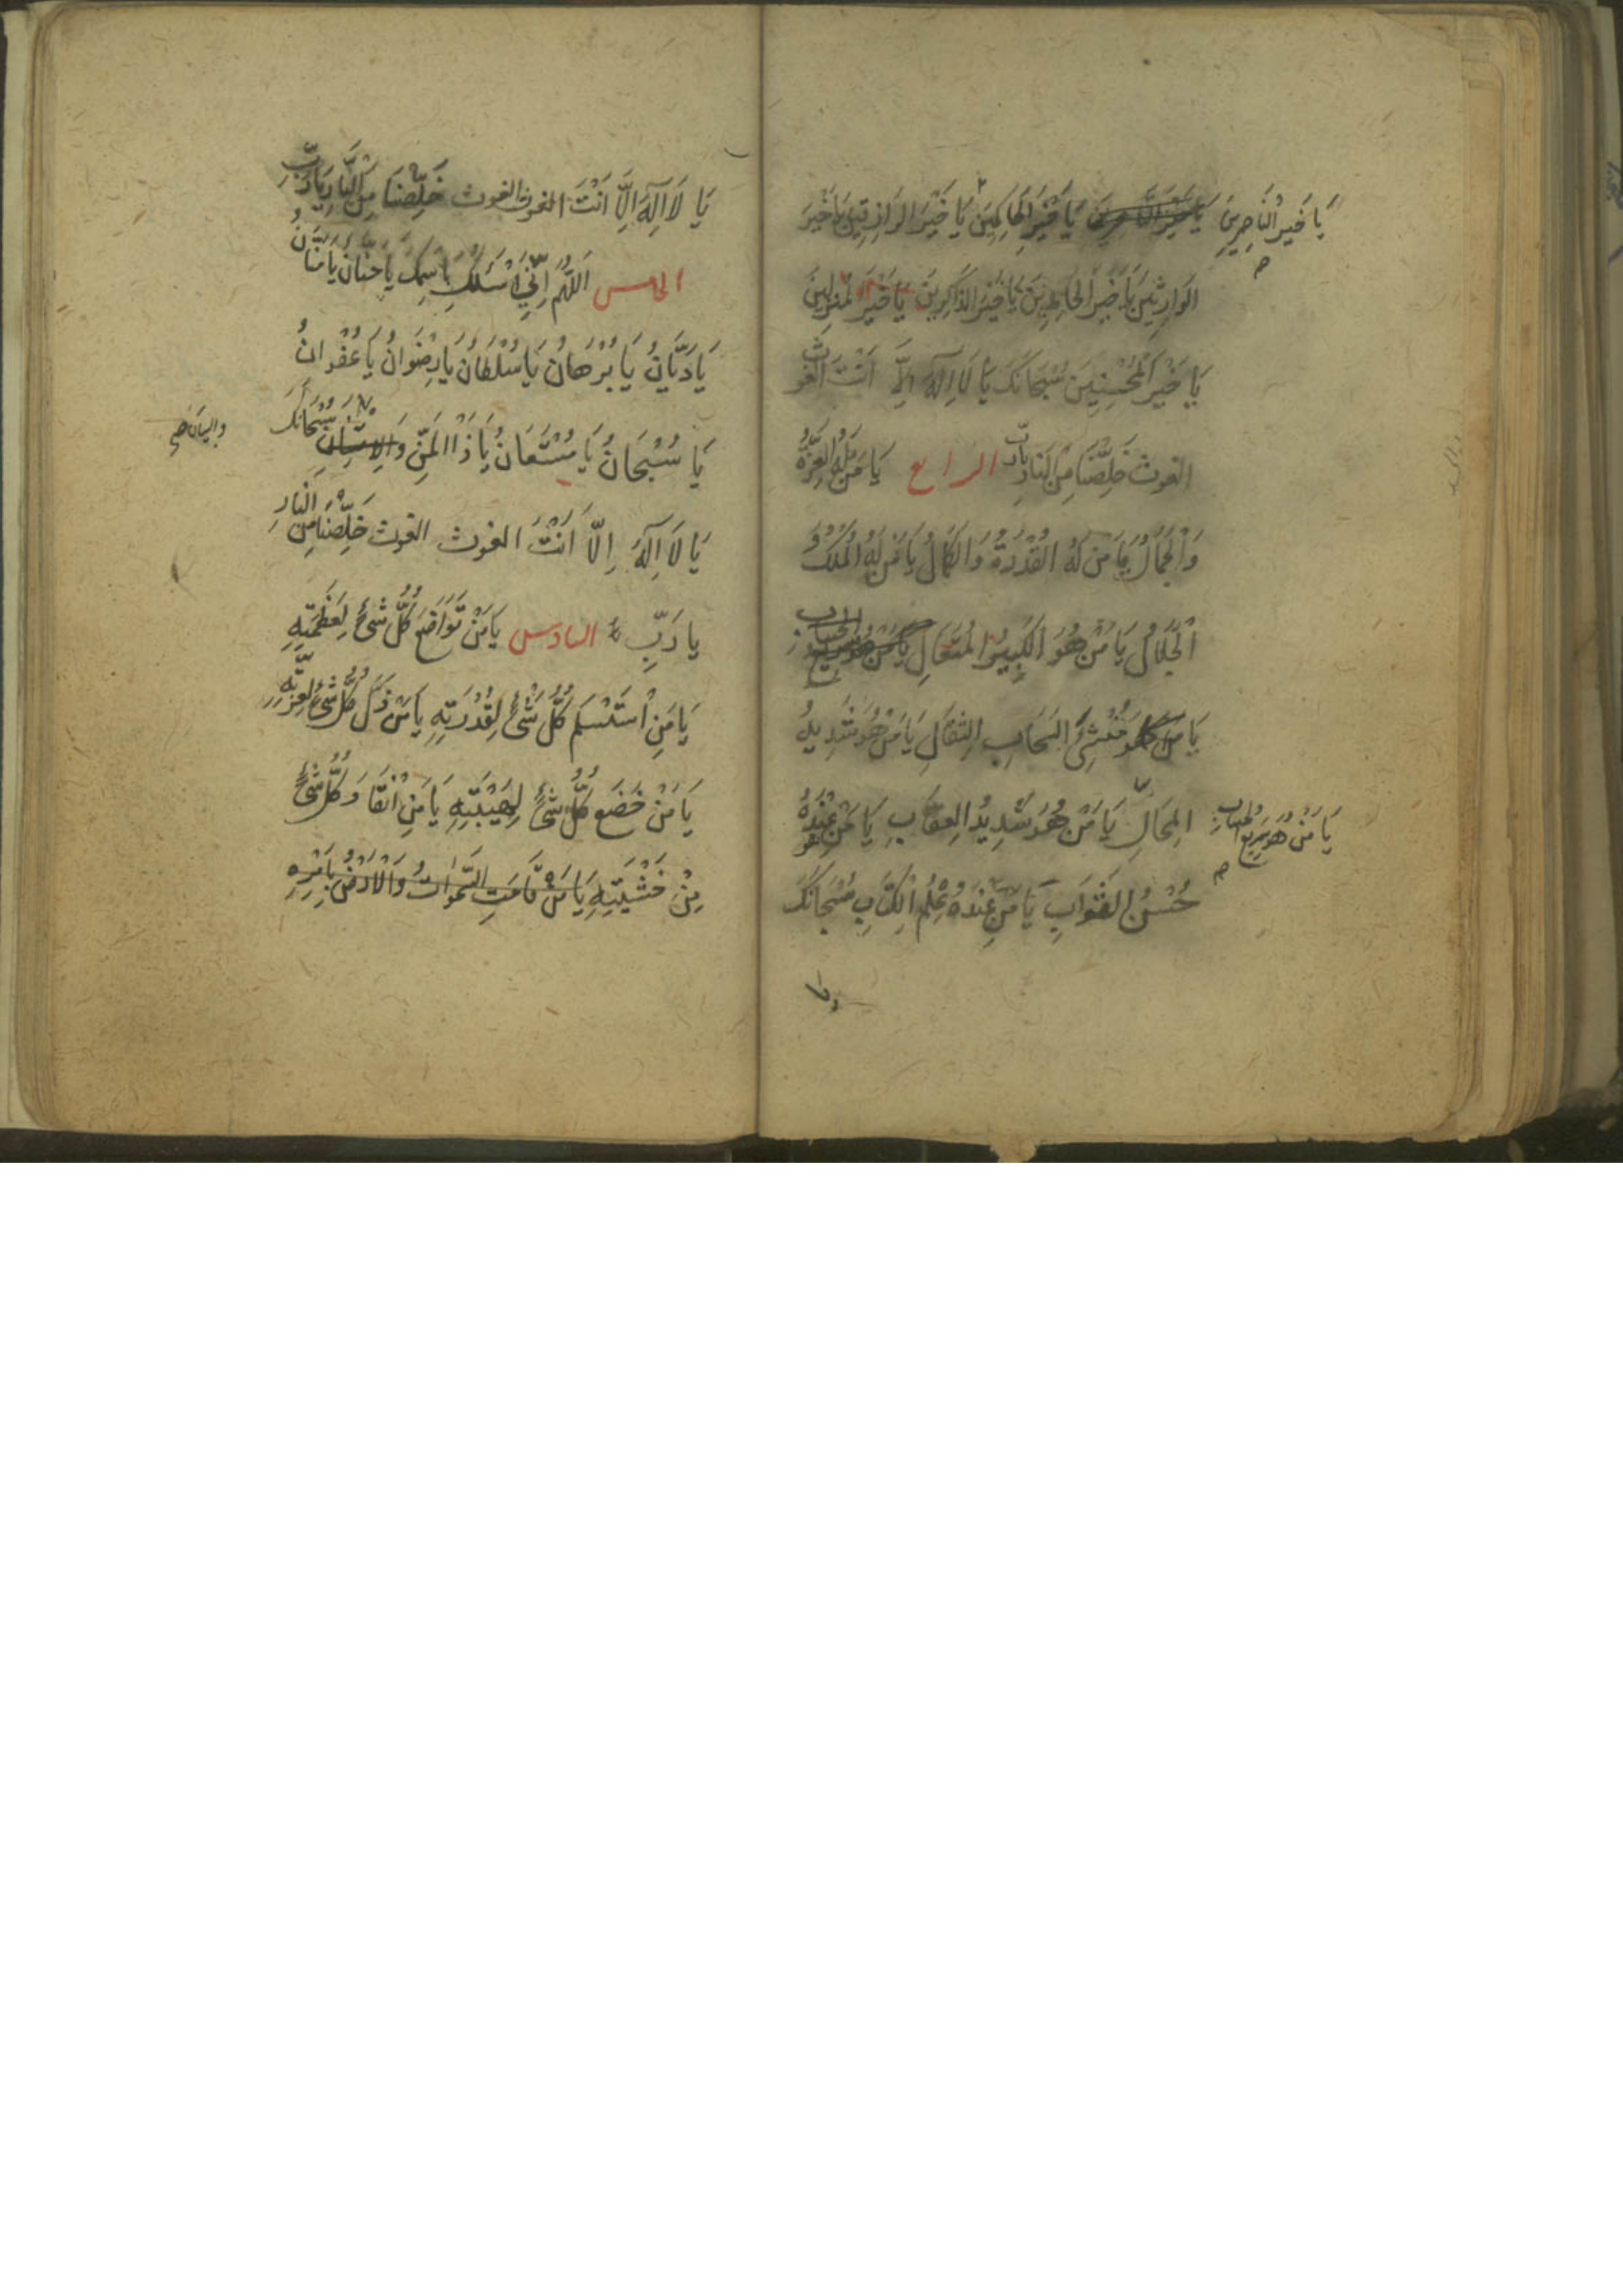 يَا خَيْرَ النَّاصِرِينَ
يَا خَيْرَ الْحَاكِمِينَ يَا خَيْرَ الرَازِقِينَ يَا خَيْرَ
الوَارِثِينَ يَا خَيْرَ الْحَامِدِينَ يَا خَيْرَ الذَّاكِرِينَ يَا خَيْرَ الْمُنْزِلِينَ
يَا خَيْرَ الْمُحْسِنِينَ سُبْحَانَكَ يَا لَا اِلٓهَ اِلَّا اَنْتَ الغَوْثَ
الغوث خَلِّصْنَا مِنَ النَّارِ يَارَبِّ الرابع يَا مَنْ لَهُ الْعِزَّةُ
وَالْجَمَالُ يَا مَنْ لَهُ القُدْرَةُ وَالكَمَالُ يَا مَنْ لَهُ الْمُلْكُ وَ
الْجَلَالُ يَا مَنْ هُوَ الكَبِيرُ الْمُتَعَالِ
يَا مَنْ هُوَ مُنْشِئُ السَحَابِ الثِقَالِ يَا مَنْ هُوَ شَدِيدُ
المِحَالِ يَا مَنْ هُوَ شَدِيدُ العِقَابِ يَا مَنْ عِنْدَهُ
يَا مَنْ هُوَ سَرِيعُ الْحِسَابِ
حُسْنُ الثَّوَابِ يَا مَنْ عِنْدَهُ عِلْمُ الْكِتَابِ سُبْحَانَكَ
يَا لَا اِلٓهَ اِلَّا اَنْتَ الغوث الغوث خَلِّصْنَا مِنَ النَّارِ يَارَبِّ
الخامس اَللّٰهُمَّ اِنِّي اَسْئَلُكَ بِاسْمِكَ يَا حَنَّانُ يَا مَنَّانُ
يَا دَيَّانُ يَا بُرْهَانُ يَا سُلْطَانُ يَا رِضْوَانُ يَا غُفْرَانُ
يَا سُبْحَانُ يَا مُسْتَعَانُ يَا ذَا الْمَنِّ وَ سُبْحَانَكَ
والبيان
يَا لَا اِلٓهَ اِلَّا اَنْتَ الغوث الغوث خَلِّصْنَا مِنَ النَّارِ
يا رَبِّ السادس يَا مَنْ تَوَاضَعَ كُلُّ شَيْءٍ لِعَظَمَتِهِ
يَا مَنِ اسْتَسْلَمَ كُلُّ شَيْءٍ لِقُدْرَتِهِ يَا مَنْ ذَلَّ كُلُّ شَيْءٍ لِعِزَّتِهِ
يَا مَنْ خَضَعَ كُلُّ شَيْءٍ لِهَيْبَتِهِ يَا مَنِ انْقَادَ كُلُّ شَيْءٍ
مِنْ خَشْيَتِهِ يَا مَنْ قَامَتِ السَّمٰوَاتُ وَالْاَرْضُ بِاَمْرِهِ